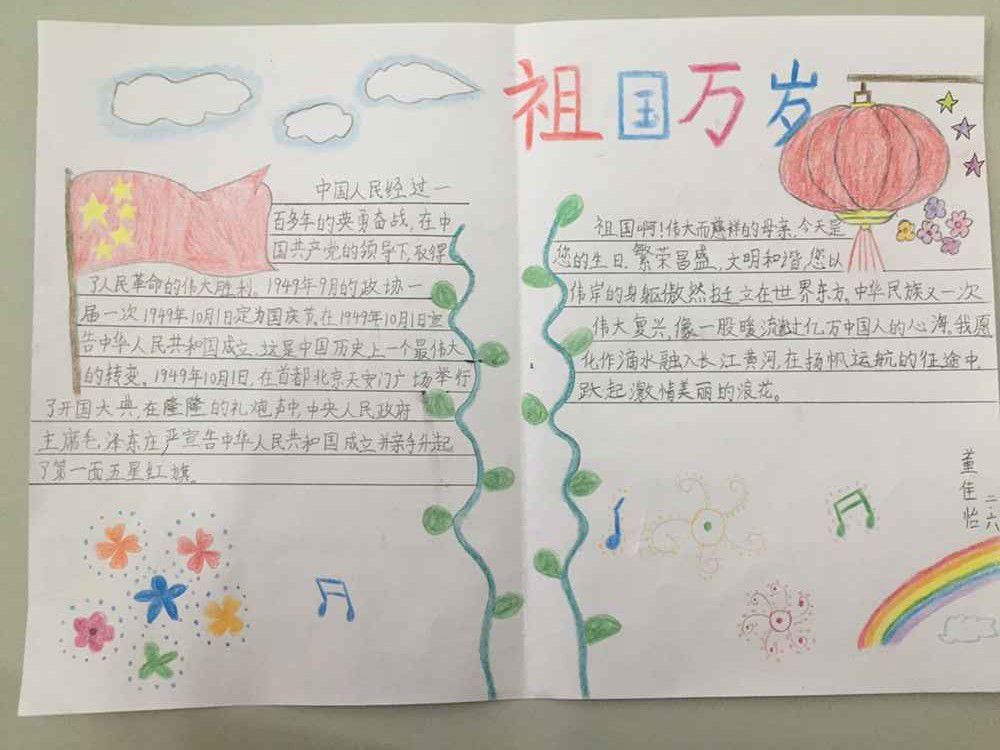 祖国万岁
中国人民经过一
百多年的英勇奋战,在中
国共产党的领导下,取得
了人民革命的伟大胜利。1949年9月的政协一
届一次1949年10月1日定为国庆节。在1949年10月1日宣
告中华人民共和国成立.这是中国历史上一个最伟大
的转变。1949年10月1日,在首都北京天安门广场举行
了开国大典,在隆隆的礼炮声中,中央人民政府
主席毛泽东庄严宣告中华人民共和国成立并亲手升起
了第一面五星红旗。
祖国啊!伟大而慈祥的母亲,今天是
您的生日.繁荣昌盛,文明和谐,您以
伟岸的身躯傲然挺立在世界东方,中华民族又一次
伟大复兴,像一股暖流越过亿万中国人的心海,我愿
化作滴水融入长江黄河,在扬帆运航的征途中,
跃起激情美丽的浪花。
董佳怡
二.六